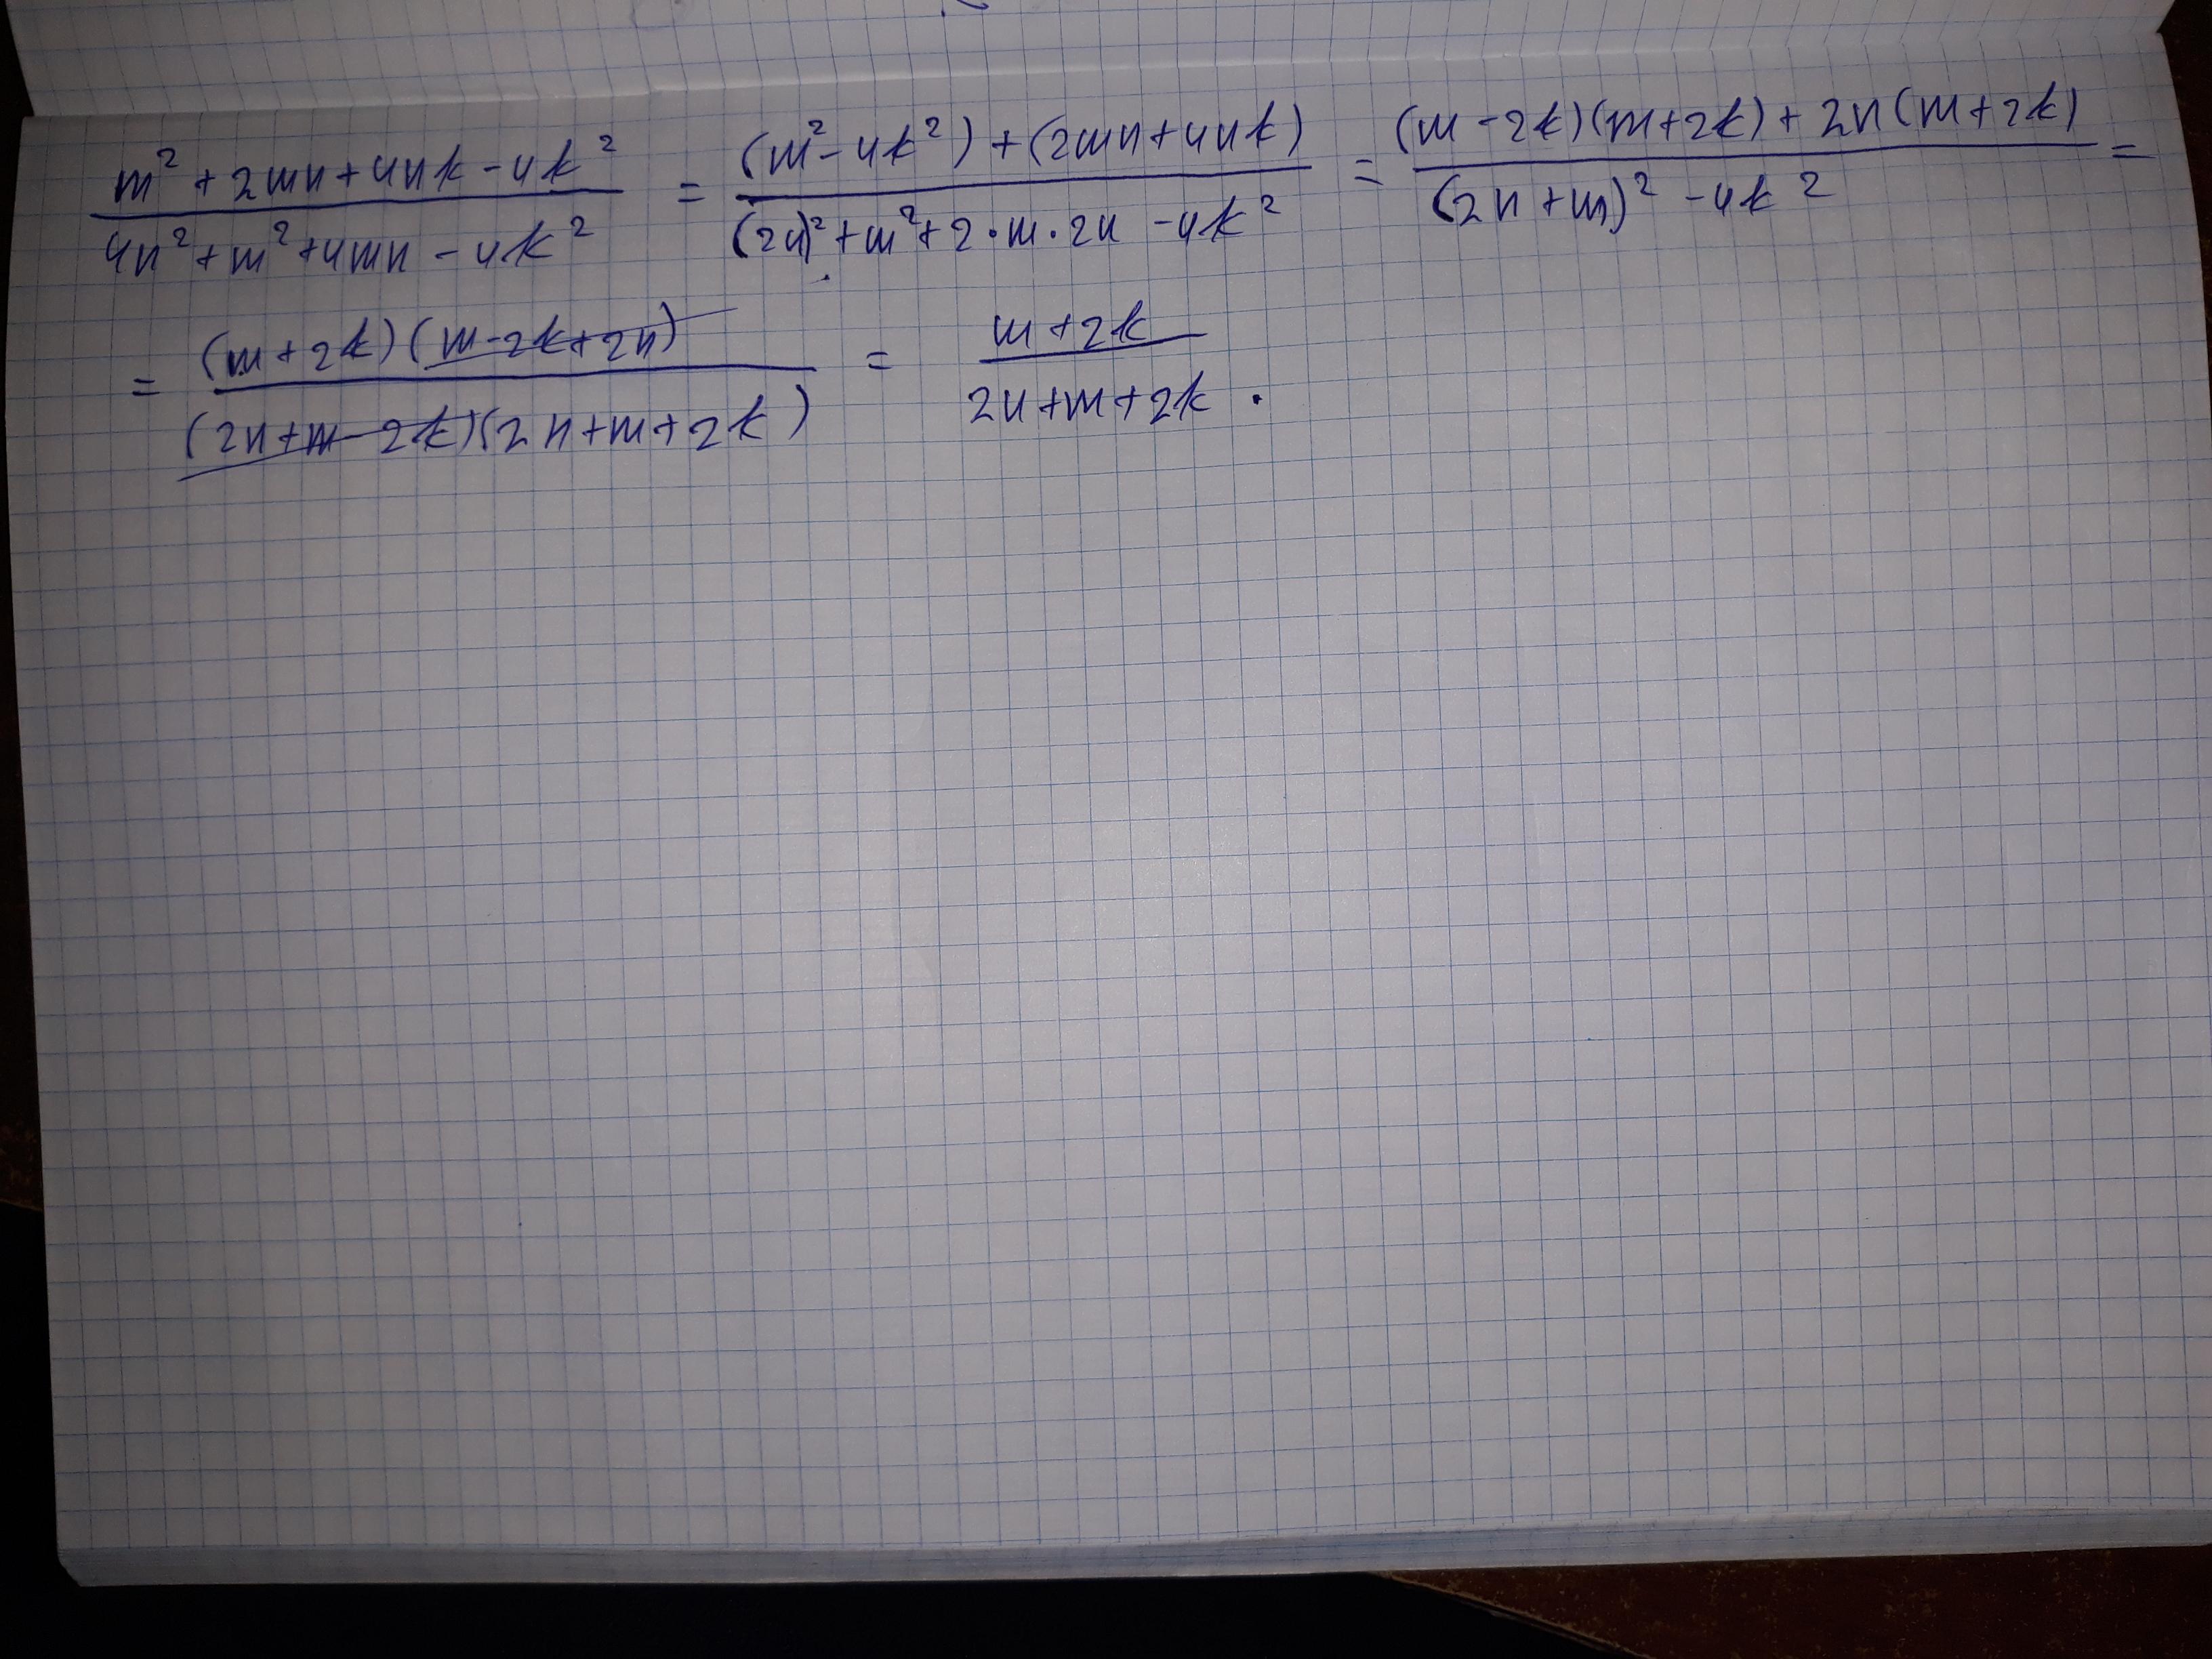 (m² + 2mn + 4nk - 4k²)/(4n² + m² + 4mn - 4k²) = ((m² - 4k²) + (2mn + 4nk))/((2n)² + m² + 2·m·2n - 4k²) = ((m - 2k)(m + 2k) + 2n(m + 2k))/((2n + m)² - 4k²) =
= ((m + 2k)(m - 2k + 2n))/((2n + m - 2k)(2n + m + 2k)) = (m + 2k)/(2n + m + 2k).